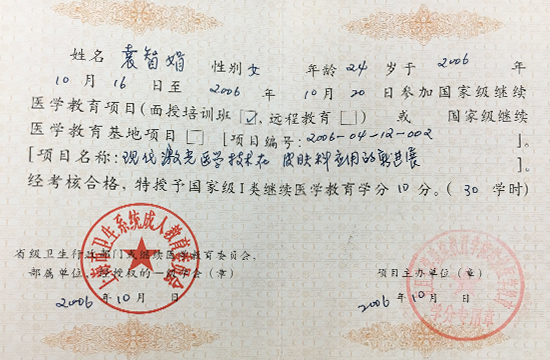 姓名 袁智娟 性别 女 年龄 24 岁于 2006 年
10 月 16 日至 2006 年 10 月 20 日参加国家级继续
医学教育项目(面授培训班☑,远程教育□) 或 国家级继续
医学教育基地项目□ [项目编号:2006-04-12-002 ]。
[项目名称:现代激光医学技术在皮肤科应用的新进展 ]。
经考核合格,特授予国家级I类继续医学教育学分 10 分。( 30 学时)
上海市卫生系统成人教育委员会
省级卫生行政部门或继续医学教育委员会,
部属单位,授权的一级学会(章)
项目主办单位(章)
学分专用章
2006 年 10 月 日
2006 年 10 月 日